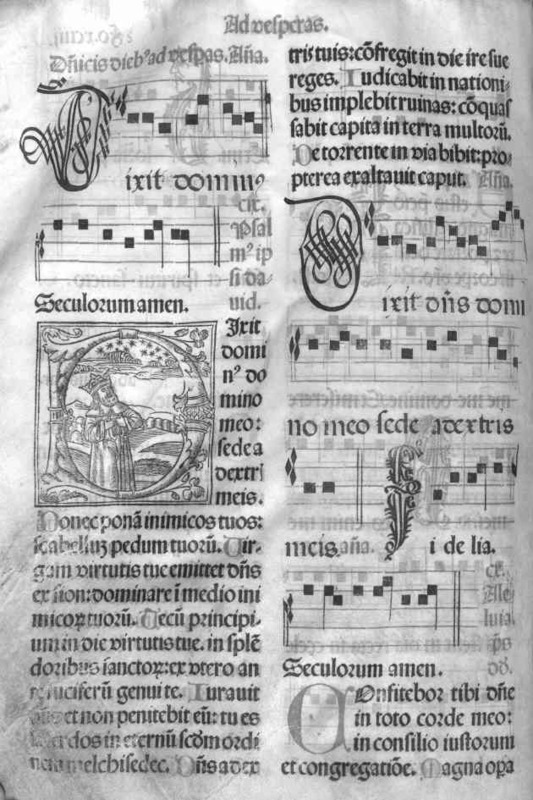 Ad vesperas.
Dñicis dieb⁹ ad vespas. Aña.
Dixit dominu⁹
Psal
m⁹ ip
si da
uid.
Seculorum amen.
Dixit
domi
n⁹ do
mino
meo:
sede a
dextri
meis.
Donec ponã inimicos tuos:
scabelluʒ pedum tuorũ. Uir-
gam virtutis tue emittet dñs
ex sion: dominare ĩ medio ini
micoꝝ tuorũ. Tecũ principi-
um in die virtutis tue. in splẽ
doribus sanctoꝝ: ex vtero an
te luciferũ genui te. Iurauit
dñs et non penitebit eũ: tu es
sacerdos in eternũ scd̃m ordi
nem melchisedec. Dñs a dex
tris tuis: cõfregit in die ire sue
reges. Iudicabit in nationi-
bus implebit ruinas: cõquas
sabit capita in terra multorũ.
De torrente in via bibit: pro-
pterea exaltauit caput. Aña.
Dixit dñs domi
no meo sede a dextris
meis. aña. Fi de lia.
Seculorum amen.
COnfitebor tibi dñe
in toto corde meo:
in consilio iustorum
et congregatiõe. Magna opa